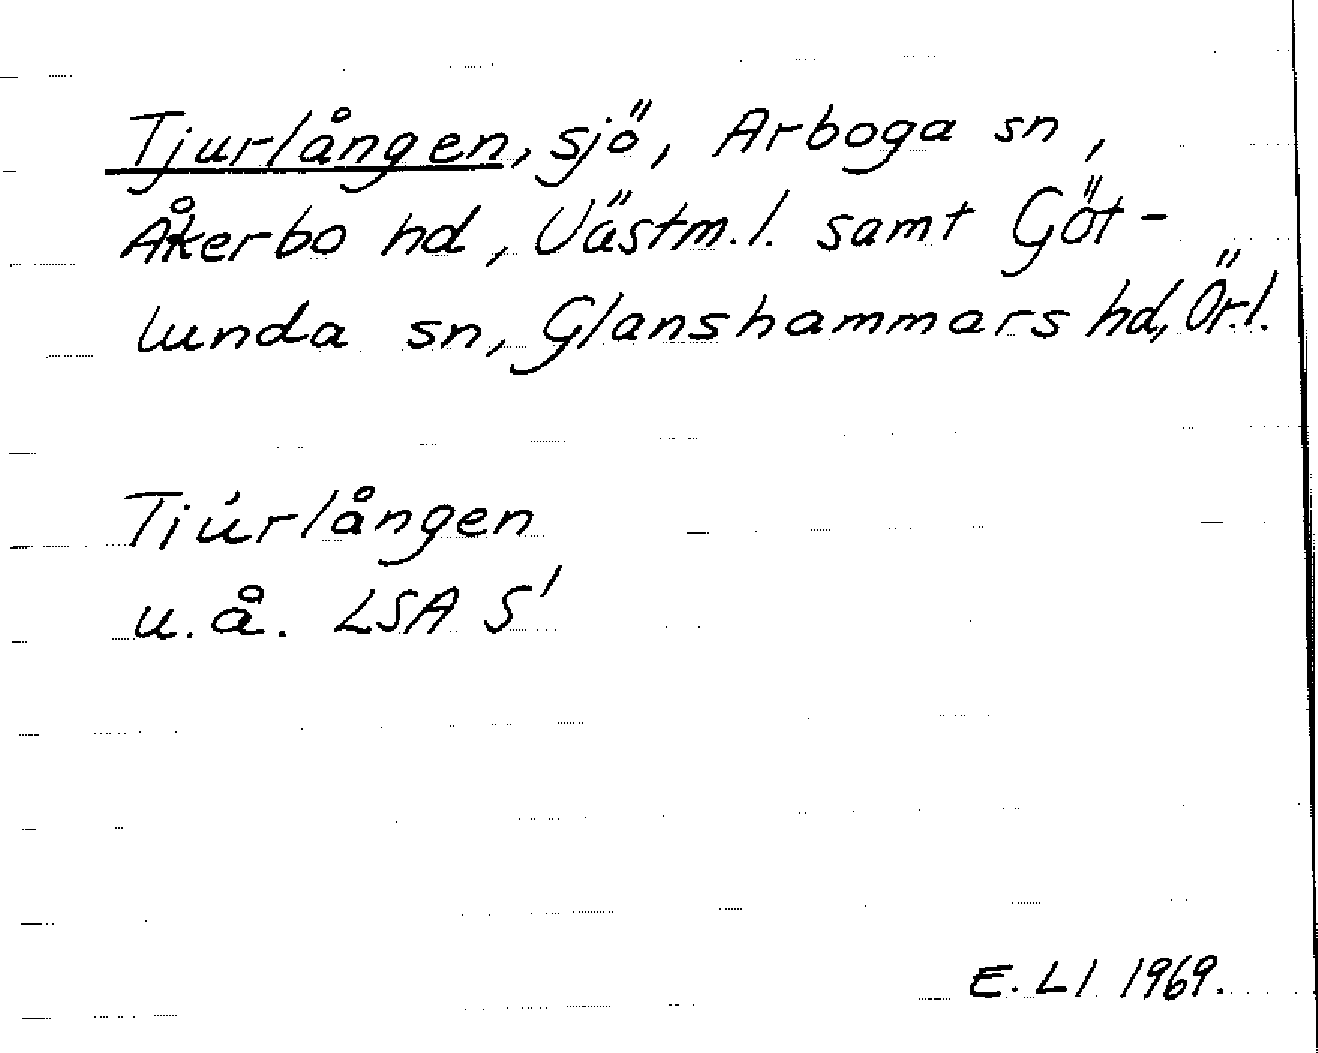 Tjurlången, sjö, Arboga sn,
Åkerbo hd, Västm.l. samt Göt-
lunda sn, Glanshammars hd, Ör.l.
Tjúrlången
u.å. LSA S'
E. Ll 1969.